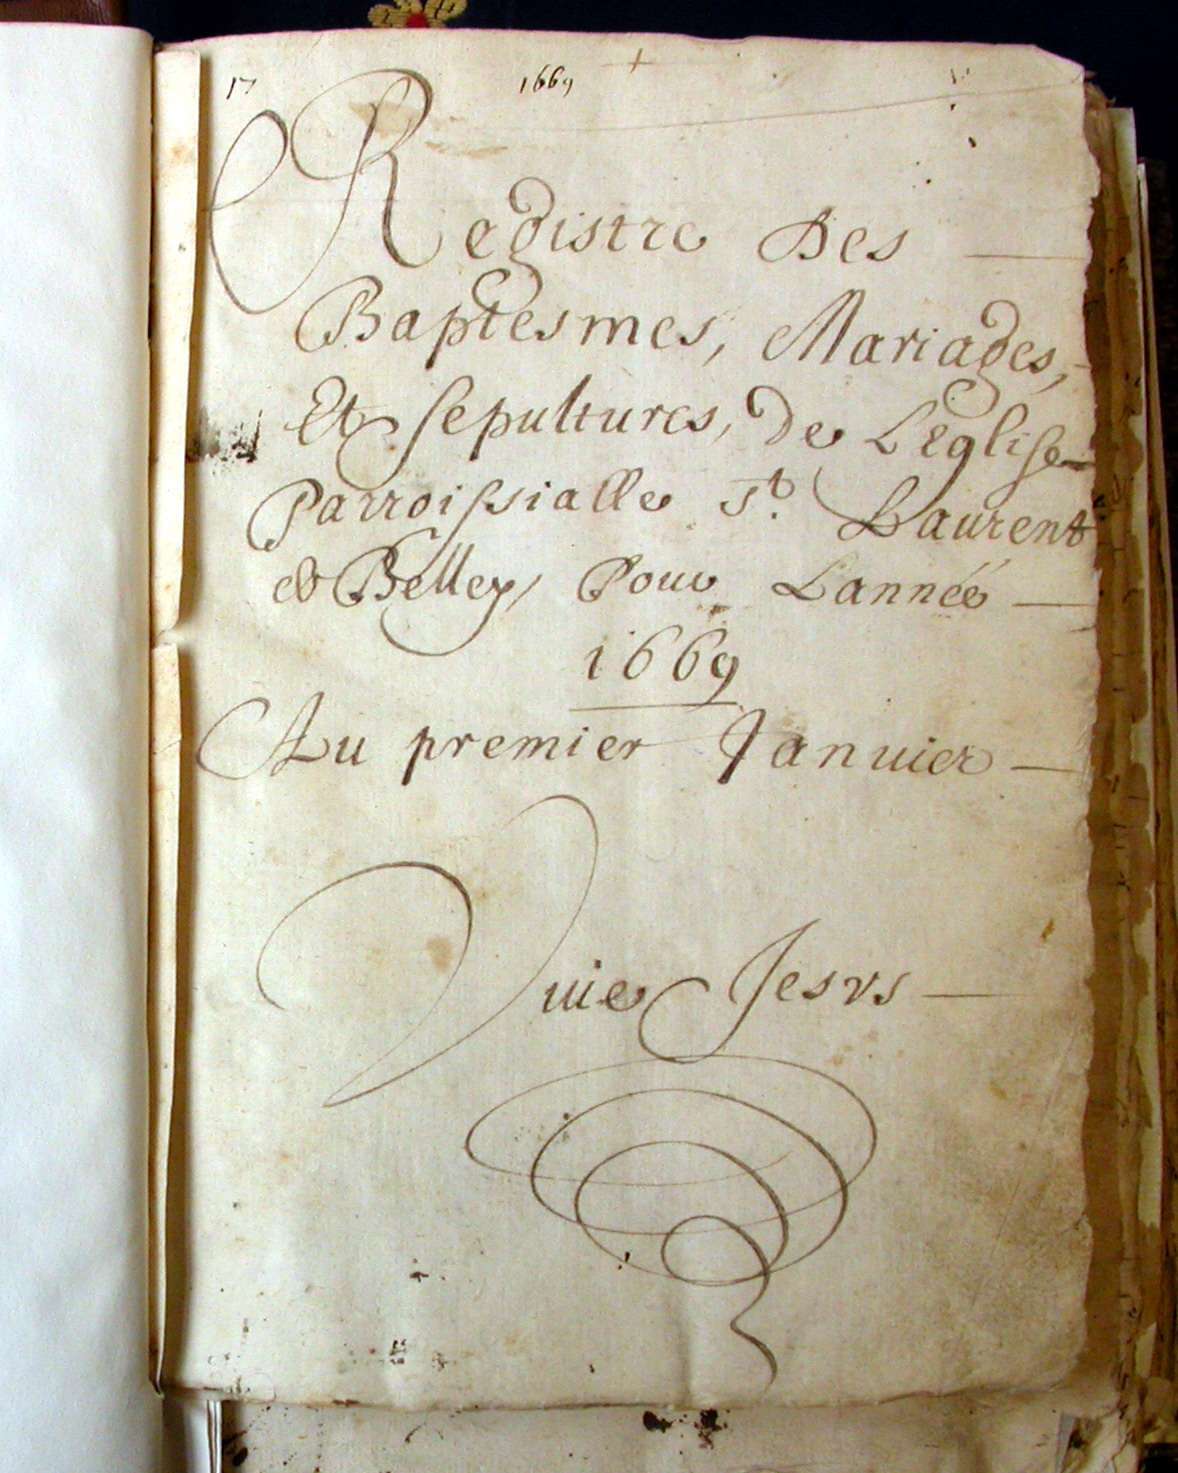 17 1669
Registre Des
Baptesmes, Mariages,
Et sepultures, de Leglise
Parroissialle St. Laurent
Belley, Pour Lannéé
1669
Au premier Januier
Viue Jesvs